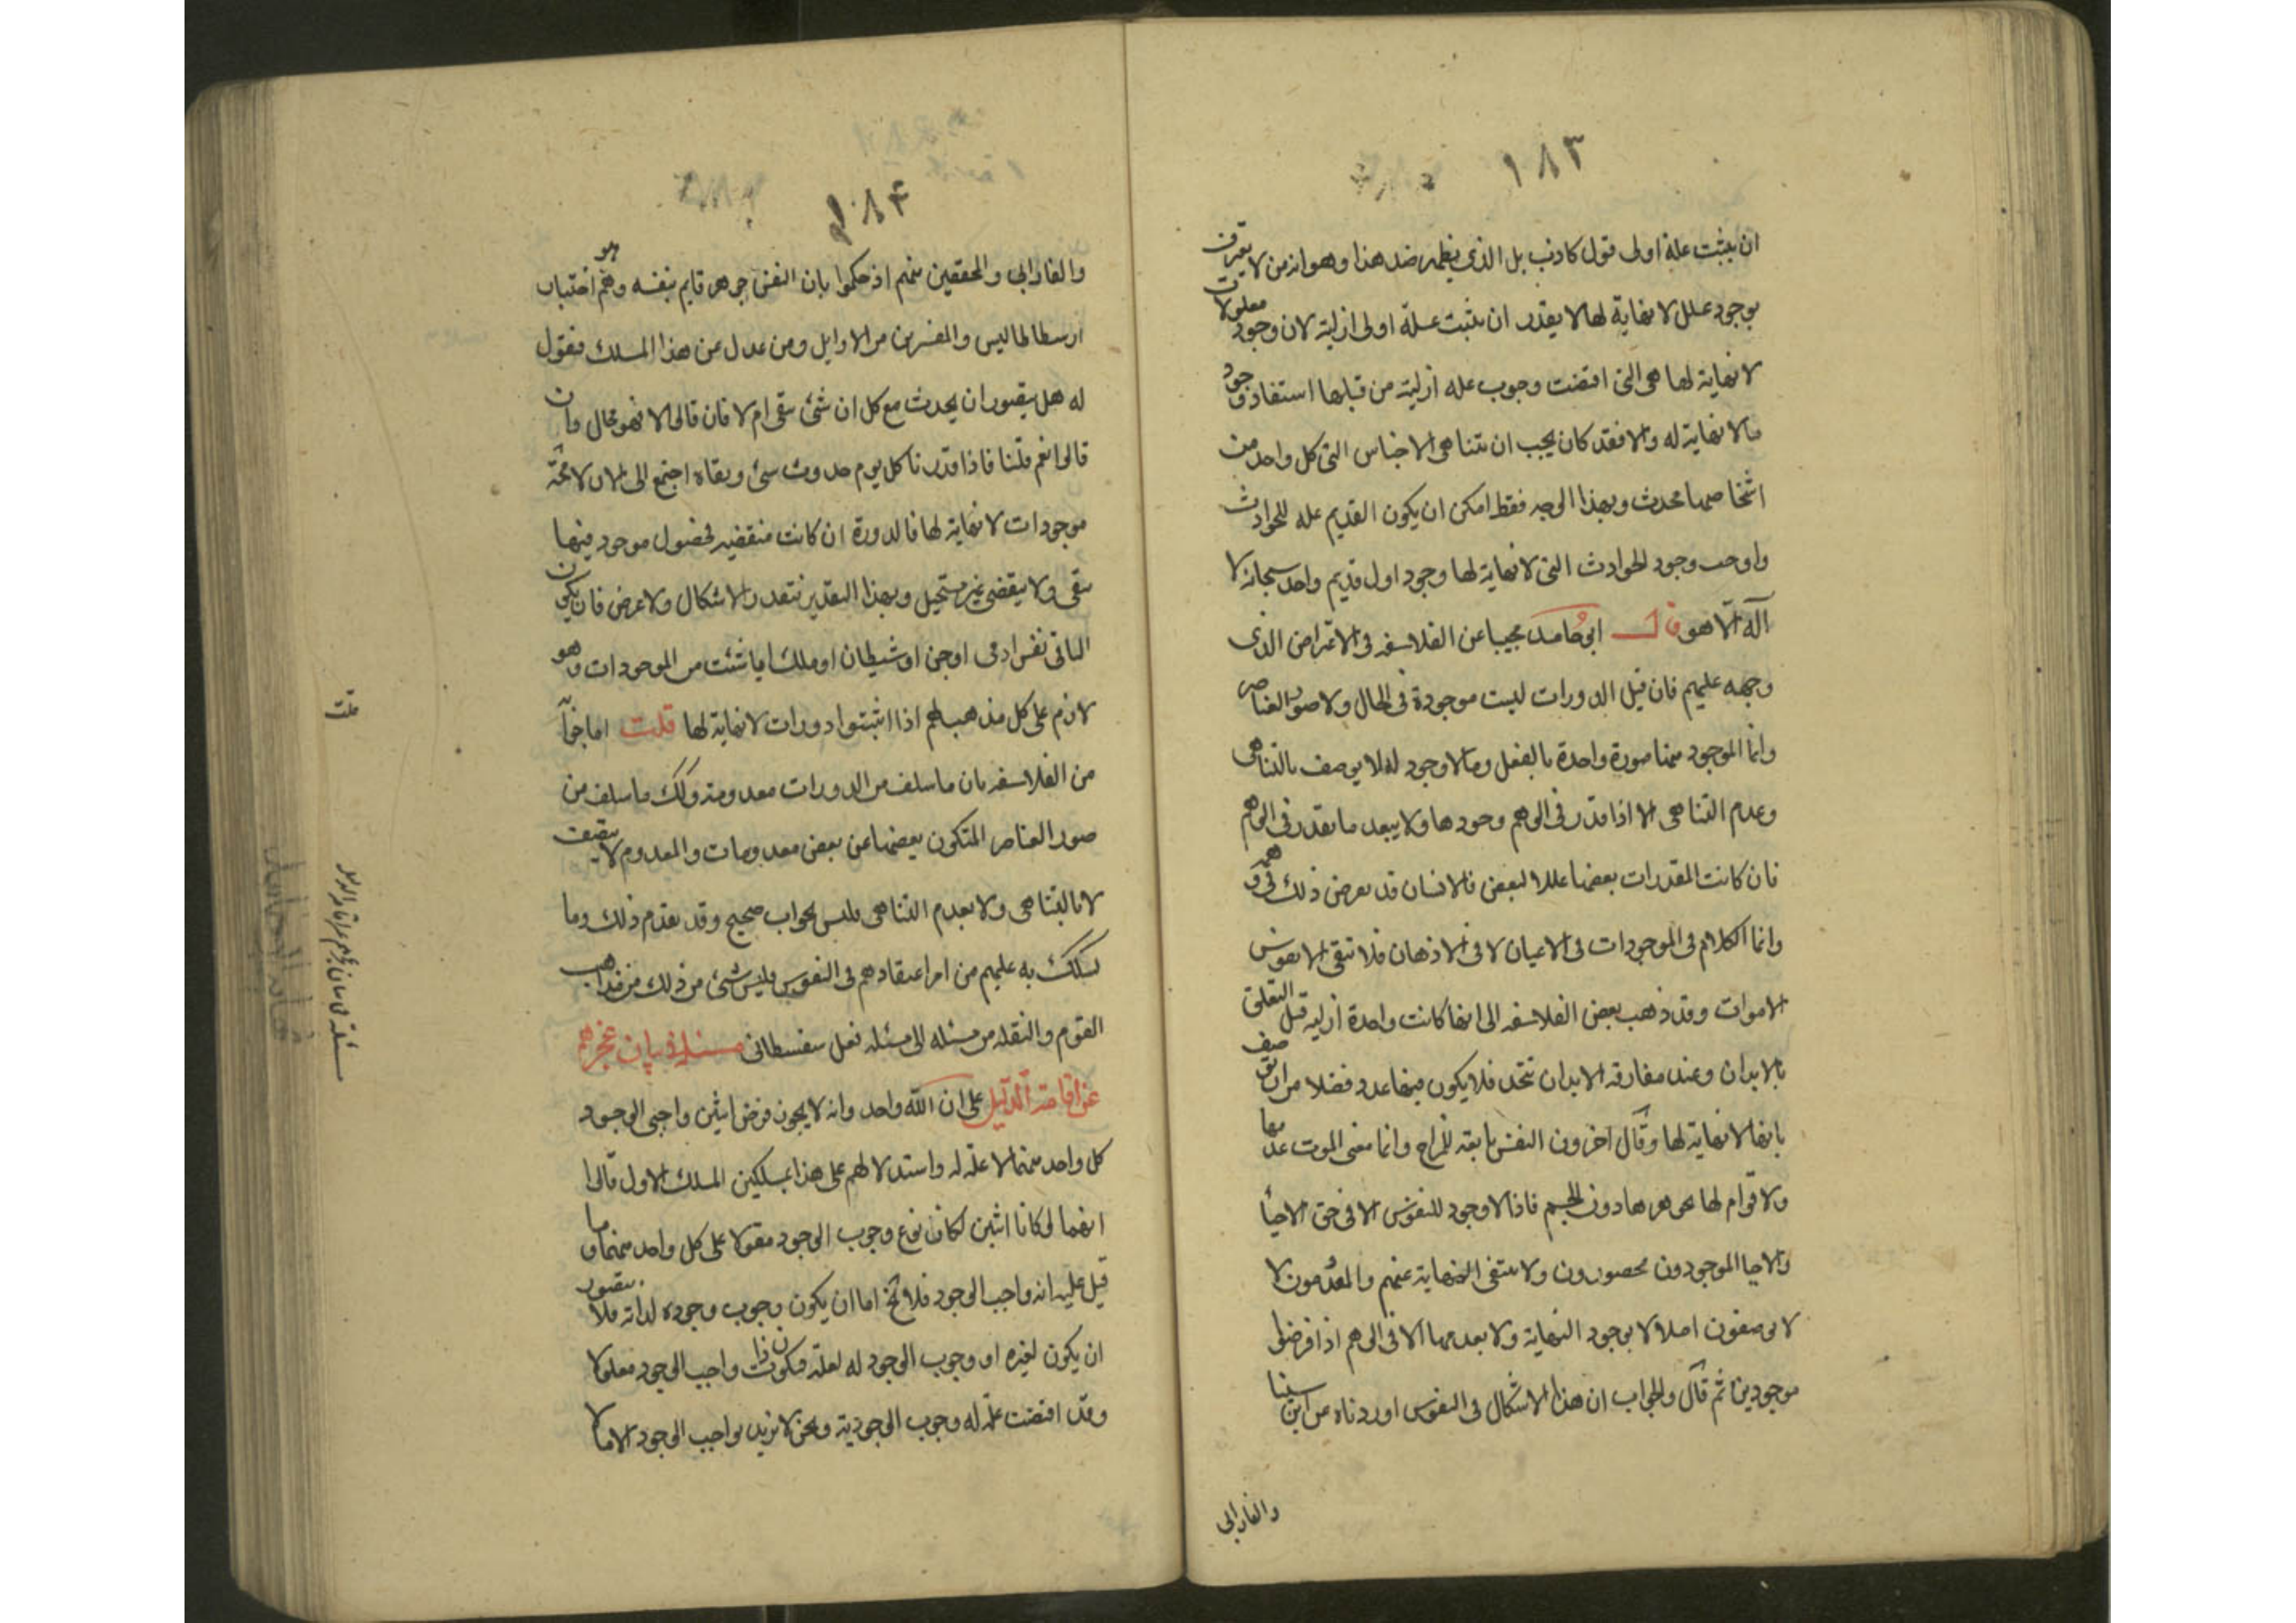 ١٨٣
ان يثبت علة اولى قول كاذب بل الذى يظهر ضد هذا وهو انه من لا يعترف
بوجود علل لا نهاية لها لا يقدر ان يثبت علة اولى ازلية لان وجود معلولات
لا نهاية لها هى التى اقتضت وجوب عله ازلية من قبلها استفاد وجود
مالا نهاية له والا فقد كان يجب ان تتناهى الاجناس التى كل واحد من
اشخاصها محدث وبهذا الوجه فقط امكن ان يكون القديم عله للحوادث
واوجب وجود الحوادث التى لا نهاية لها وجود اول قديم واحد سبحانه لا
آله الا هو قال ابو حامد مجيبا عن الفلاسفه فى الاعتراض الذى
وجهه عليهم فان قيل الدورات ليست موجودة فى الحال ولا صور العناصر
وانما الموجود منها صورة واحدة بالفعل ومالا وجود له لا يوصف بالتناهى
وعدم التناهى الا اذا قدر فى الوهم وجودها ولا يبعد ما يقدر فى الوهم
فان كانت المقدرات بعضها عللا لبعض فالانسان قد يعرض ذلك فى وهمه
وانما الكلام فى الموجودات فى الاعيان لا فى الاذهان فلا تبقى الا نفوس
الاموات وقد ذهب بعض الفلاسفه الى انها كانت واحدة ازلية قبل التعلق
بالابدان وعند مفارقه الابدان تتحد فلا يكون فيها عدد فضلا من ان توصف
بانها لا نهاية لها وقال اخرون النفس تابعه للمزاج وانما معنى الموت عدمها
ولا قوام لها بجوهرها دون الجسم فاذا لا وجود للنفوس الا فى حق الاحيا
والاحيا الموجودون محصورون ولا تنتفى النهاية عنهم والمعدومون لا
لا يوصفون اصلا لا بوجود النهاية ولا بعدمها الا فى الوهم اذا فرضوا
موجودين ثم قال والجواب ان هذا الاشكال فى النفوس اوردناه عن ابن سينا
والفارابى
١٨٤
والفارابى والمحققين منهم اذ حكموا بان النفس جوهر قايم بنفسه وهو اختيار
ارسطاطاليس والمفسرين من الاوايل ومن عدل عن هذا المسلك فنقول
له هل يتصور ان يحدث مع كل ان شئ يبقى ام لا فان قالوا لا فهو محال وان
قالوا نعم قلنا فاذا قدرنا كل يوم حدوث شئ وبقاه اجتمع الى الان لا محة
موجودات لا نهاية لها فالدورة ان كانت منقضيه فحصول موجود فيها
يبقى ولا ينقضى غير مستحيل وبهذا التقدير يتقدر الاشكال ولا غرض فان يكون
الباقى نفس ادمى او جن او شيطان او ملك اياشئت من الموجودات وهو
لازم على كل مذهب لهم اذا اثبتوا دورات لا نهاية لها قلت اما جوا
من الفلاسفه بان ما سلف من الدورات معدومة وكك ما سلف من
صور العناصر المتكون بعضها عن بعض معدومات والمعدوم لا يتصف
لا بالتناهى ولا بعدم التناهى فليس بجواب صحيح وقد تقدم ذلك وما
تشكك به عليهم من امر اعتقادهم فى النفوس فليس شئ من ذلك من مذاهب
القوم والنقله من مسئله الى مسئله فعل سفسطانى مسئلة فى بيان عجزهم
عن اقامة الدليل على ان الله واحد وانه لا يجوز فرض اثنين واجبى الوجود
كل واحد منهما لا علة له واستدلالهم على هذا بمسلكين المسلك الاول قالوا
انهما لو كانا اثنين لكان نوع وجوب الوجود مقولا على كل واحد منهما وما
قيل عليه انه واجب الوجود فلا يخ اما ان يكون وجوب وجوده لذاته فلا يتصور
ان يكون لغيره او وجوب الوجود له لعلة فيكون ذات واجب الوجود معلولا
وقد اقتضت علة له وجوب الوجودية ونحن لا نريد بواجب الوجود الا مالا